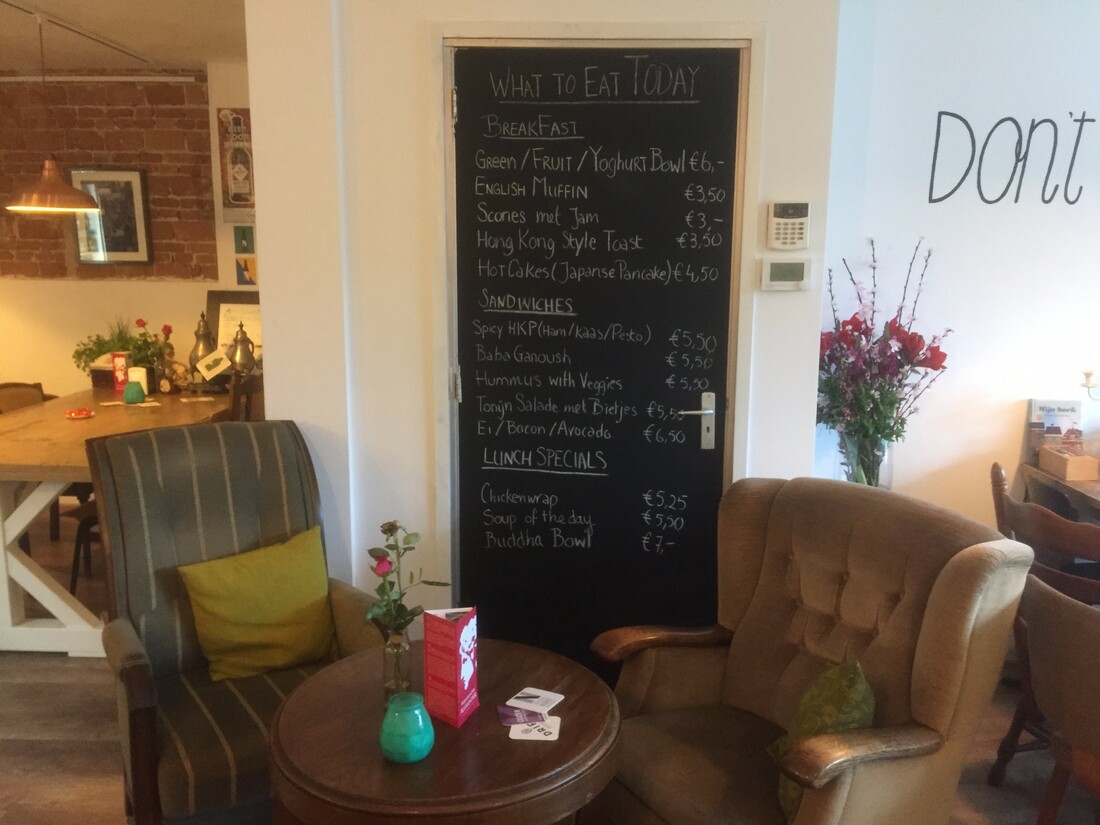 WHAT TO EAT TODAY
BREAKFAST
GREEN / FRUIT / YOGHURT BOWL €6,-
ENGLISH MUFFIN €3,50
Scones met Jam €3,-
Hong Kong Style Toast €3,50
HotCakes (Japanse Pancake) €4,50
SANDWICHES
Spicy HKP (Ham/kaas/Pesto) €5,50
Baba Ganoush €5,50
Hummus with Veggies €5,50
Tonijn Salade met Bietjes €5,5
Ei / Bacon / Avocado €6,50
LUNCH SPECIALS
Chickenwrap €5,25
Soup of the day €5,50
Buddha Bowl €7,-
DON't